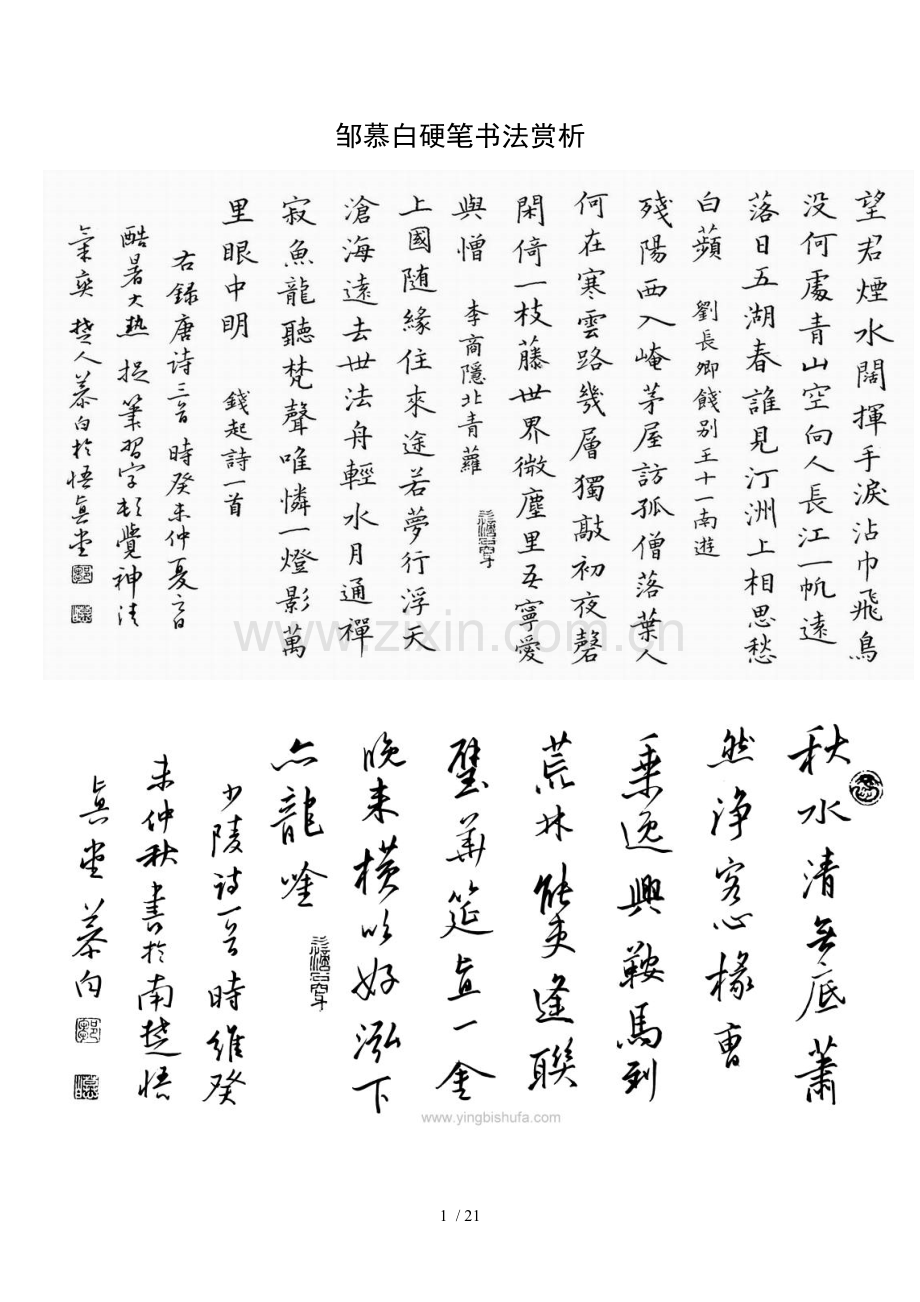 邹慕白硬笔书法赏析
望君煙水闊揮手淚沾巾飛鳥
没何處青山空向人長江一帆遠
落日五湖春誰見汀洲上相思愁
白蘋 劉長卿餞别王十一南遊
殘陽西入崦茅屋訪孤僧落葉人
何在寒雲路幾層獨敲初夜磬
閑倚一枝藤世界微塵里吾寧愛
與憎 李商隱北青蘿
上國随緣住來途若夢行浮天
滄海遠去世法舟輕水月通禪
寂魚龍聽梵聲唯憐一燈影萬
里眼中明 錢起詩一首
右録唐诗三首時癸未仲夏之日
酷暑大热提筆習字頓覺神清
氣爽 楚人慕白於悟真堂
www.zixin.com.cn
秋水清無底蕭
然净客心椽曹
乘逸興鞍馬到
荒林能吏逢聯
璧華筵直一金
晚来横吹好泓下
亦龍吟
少陵诗一首時維癸
未仲秋書於南楚悟
真堂慕白
www.yingbishufa.com
1 / 21